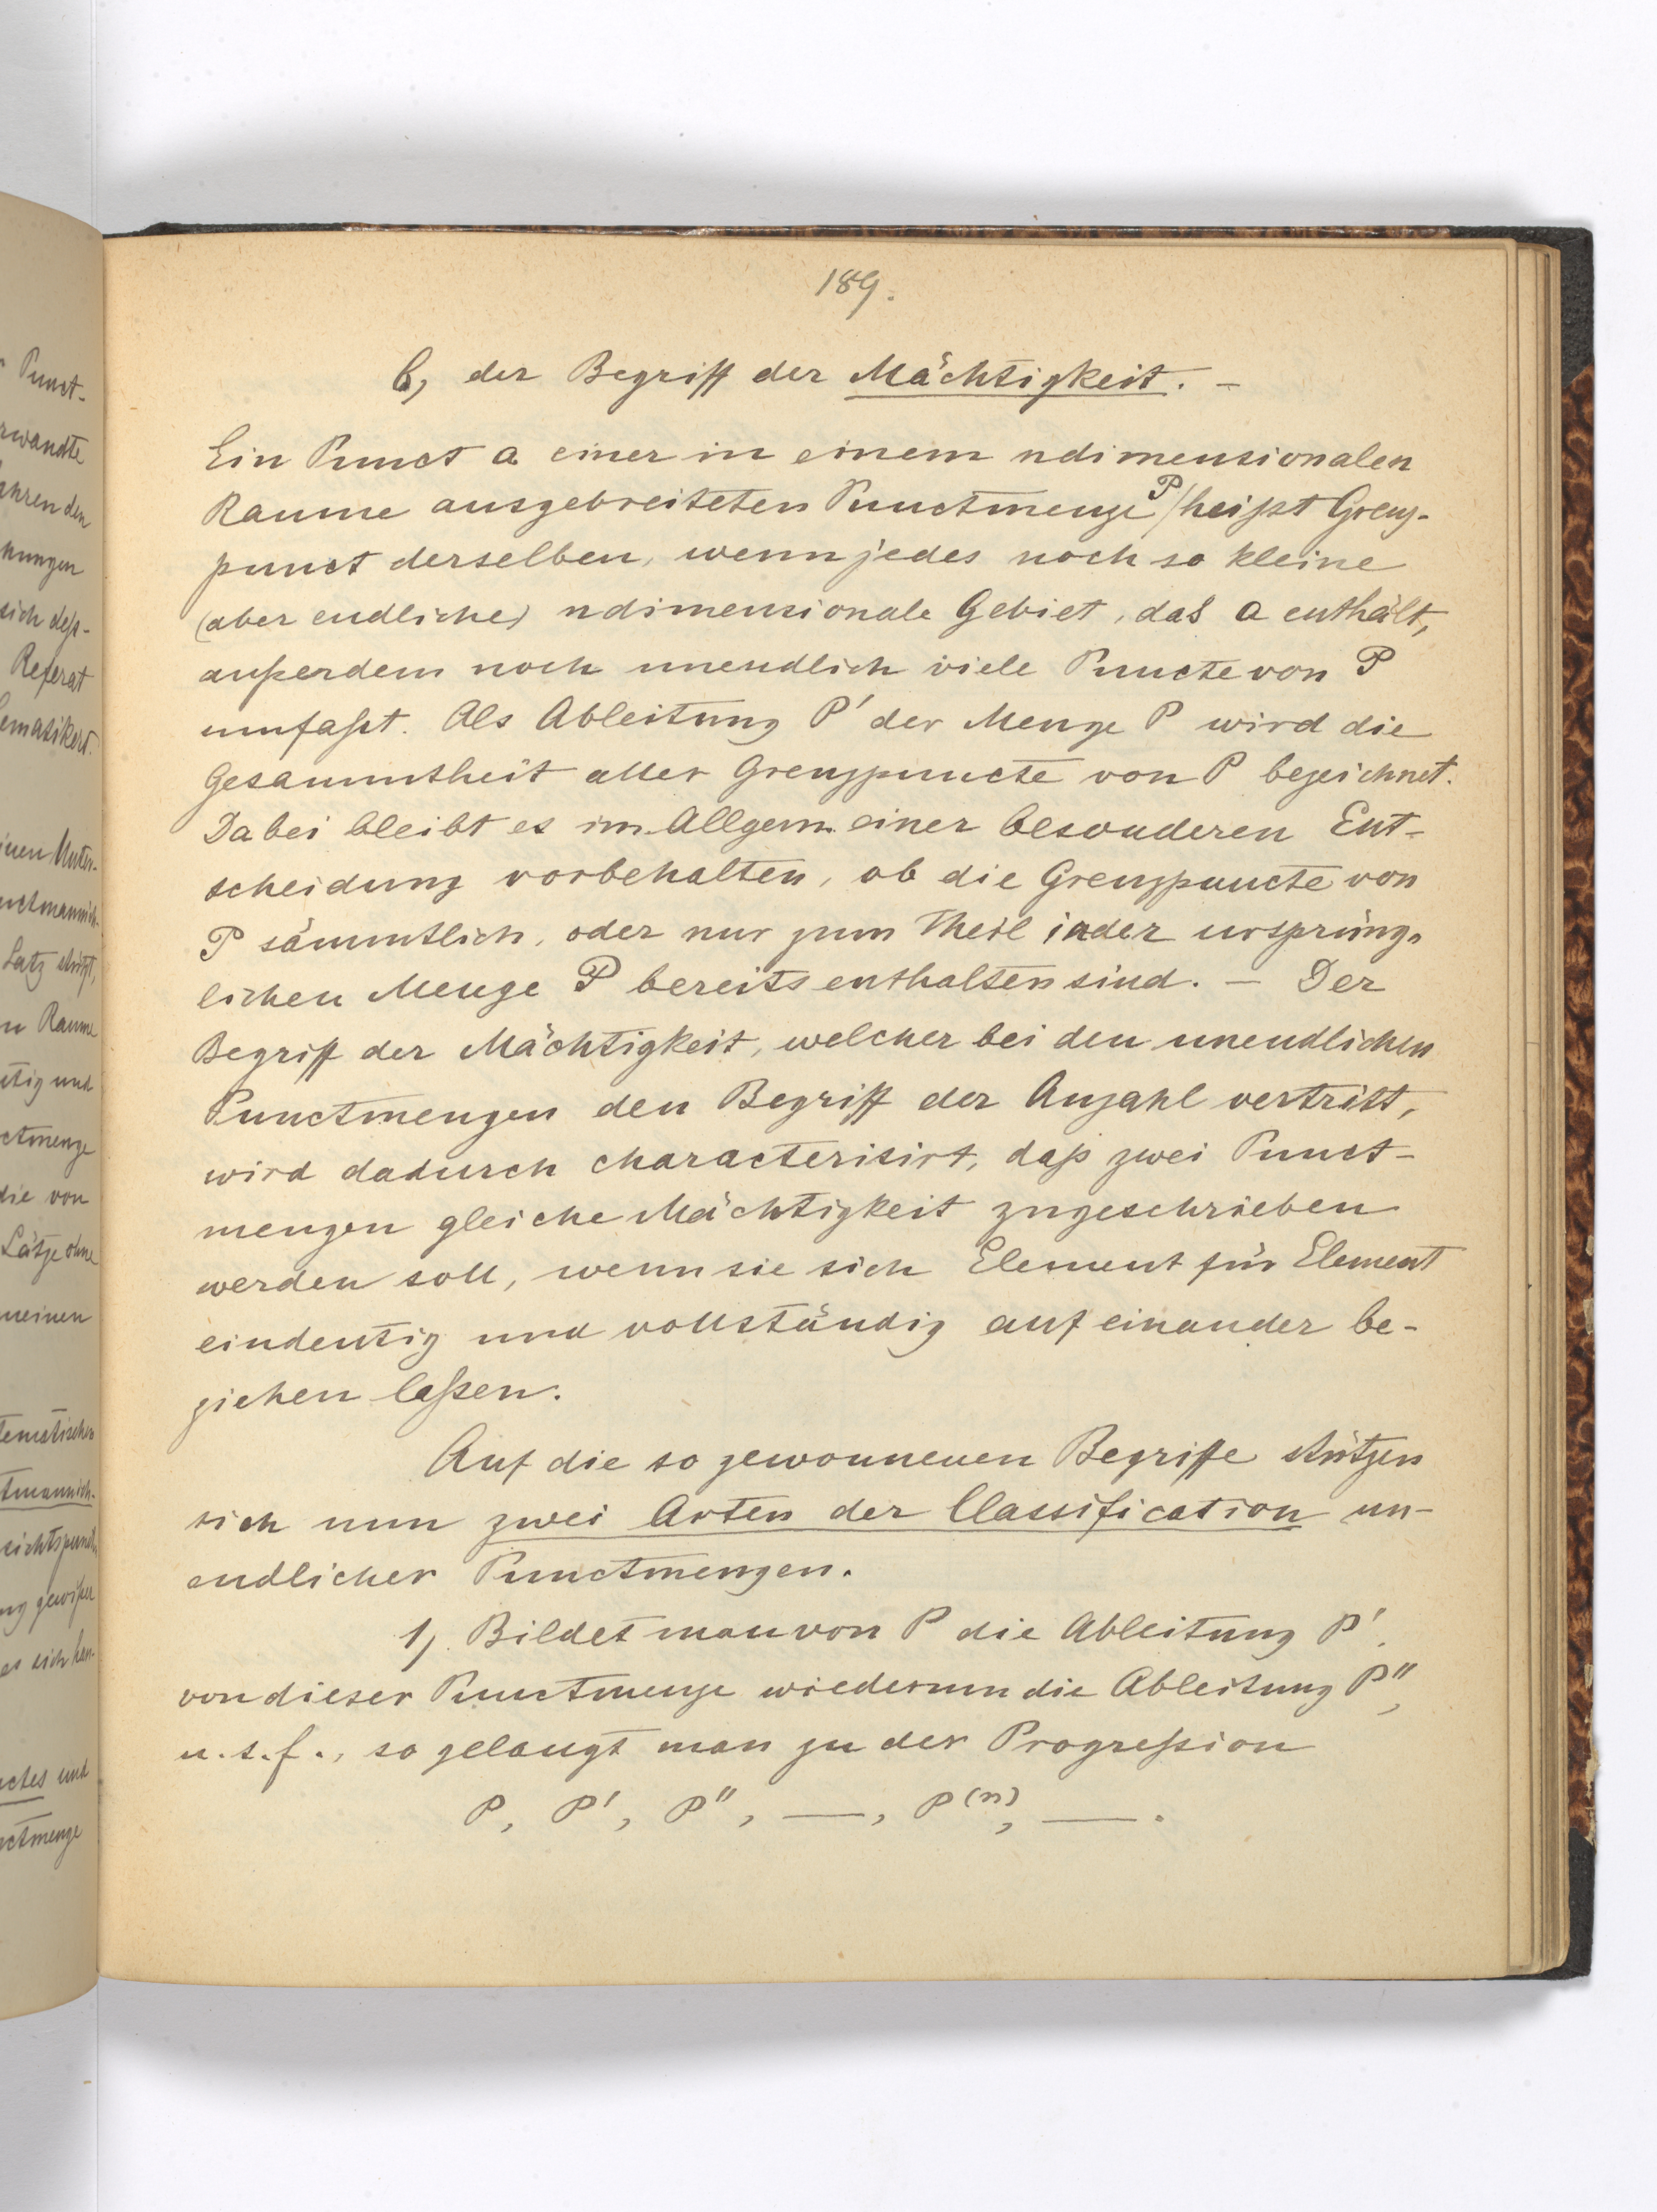 189.
b, der Begriff der Mächtigkeit. –
Ein Punct a einer in einem ndimensionalen
Raume ausgebreiteten Punctmenge P heißt Grenz-
punct derselben, wenn jedes noch so kleine
(aber endliche) ndimensionale Gebiet, das a enthält,
außerdem noch unendlich viele Puncte von P
umfaßt. Als Ableitung P' der Menge P wird die
Gesammtheit aller Grenzpuncte von P bezeichnet.
Dabei bleibt es im Allgem. einer besonderen Ent-
scheidung vorbehalten, ob die Grenzpuncte von
P sämmtlich, oder nur zum Theil in der ursprüng-
lichen Menge P bereits enthalten sind. – Der
Begriff der Mächtigkeit, welcher bei den unendlichen
Punctmengen den Begriff der Anzahl vertritt,
wird dadurch characterisirt, daß zwei Punct-
mengen gleiche Mächtigkeit zugeschrieben
werden soll, wenn sie sich Element für Element
eindeutig und vollständig auf einander be-
ziehen laßen.
Auf die so gewonnenen Begriffe stützen
sich nun zwei Arten der Classification un-
endlicher Punctmengen.
1, Bildet man von P die Ableitung P',
von dieser Punctmenge wiederum die Ableitung P'',
u. s. f., so gelangt man zu der Progreßion
P, P', P'', —, P(n), —.
Punct-
rwandte
ahren den
nungen
sich deß-
Referat
ematikert.
inen Unter-
nctmannich-
Satz stützt,
n Raume
utig und
ctmenge
die von
Sätze ohne
meinen
tematischen
tmannich-
sichtspunct
ng gewißer
es sich han-
nctes und
nctmenge